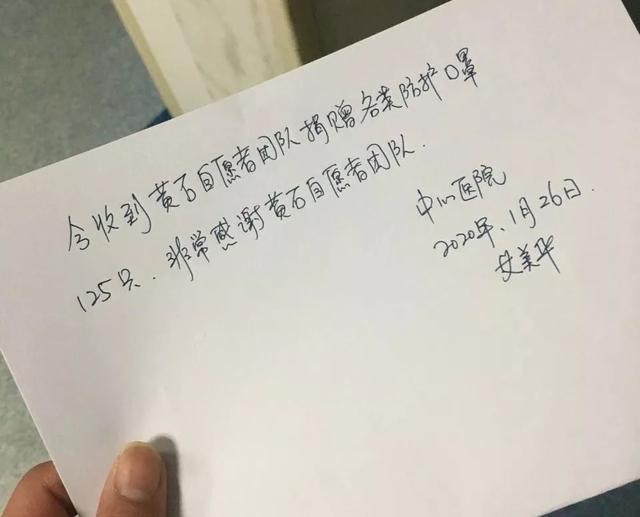 今收到黄石自愿者团队捐赠各类防护口罩
125只.非常感谢黄石自愿者团队.
中心医院
2020年.1月26日.
美华